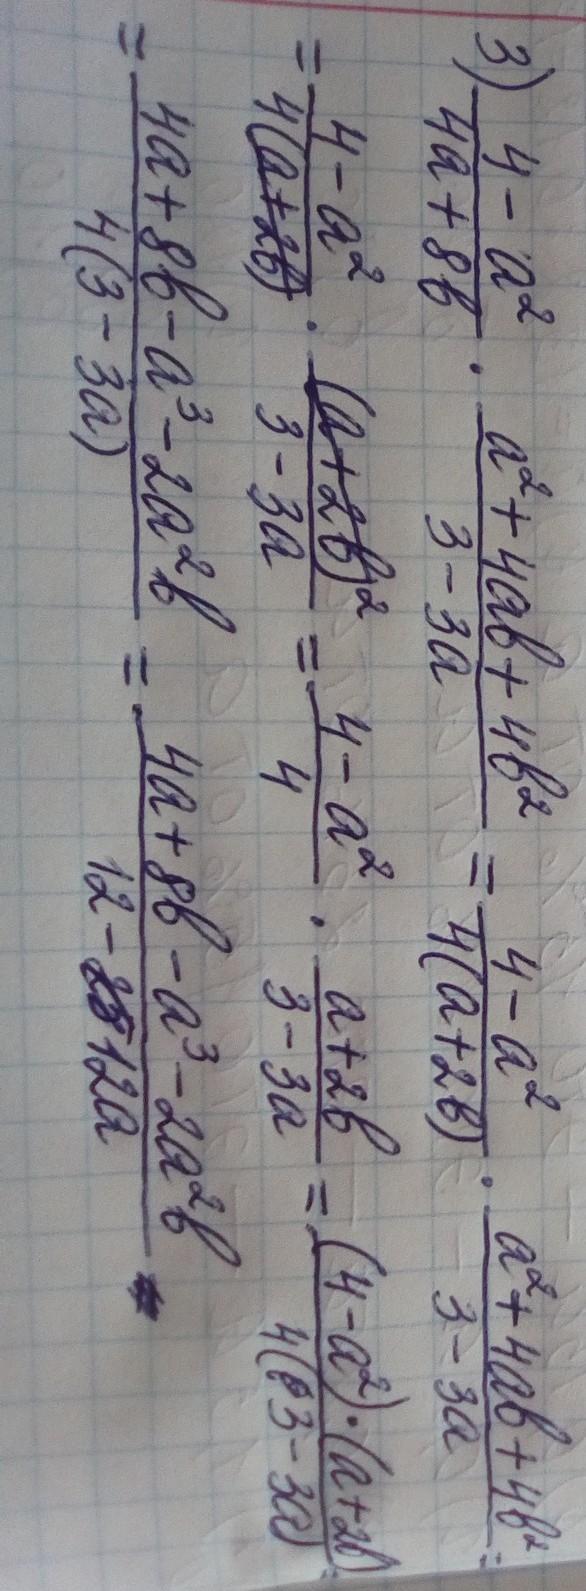 3) (4 - a²)/(4a + 8b) · (a² + 4ab + 4b²)/(3 - 3a) = (4 - a²)/(4(a + 2b)) · (a² + 4ab + 4b²)/(3 - 3a) =
= (4 - a²)/(4(a + 2b)) · (a + 2b)²/(3 - 3a) = (4 - a²)/4 · (a + 2b)/(3 - 3a) = ((4 - a²) · (a + 2b)/(4(3 - 3a) =
= (4a + 8b - a³ - 2a²b)/(4(3 - 3a)) = (4a + 8b - a³ - 2a²b)/(12 - 12a)